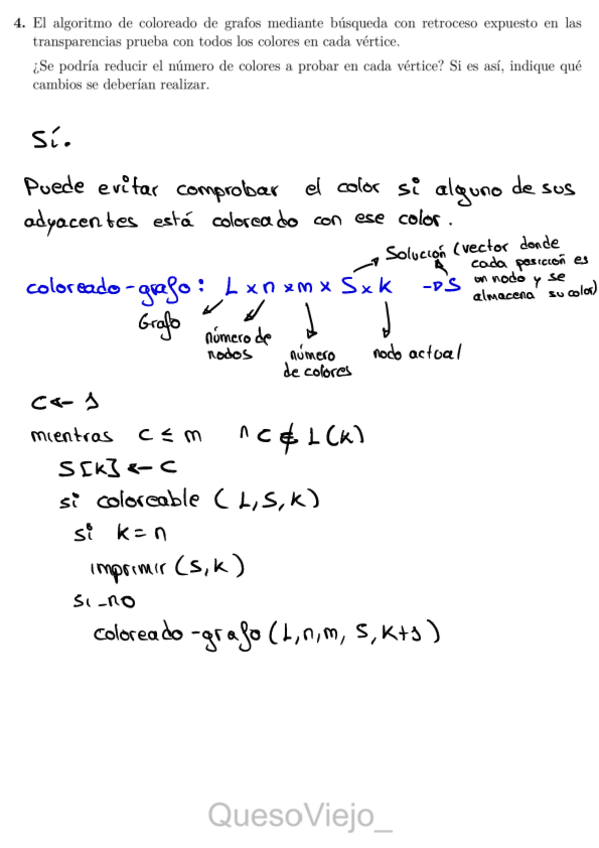 4. El algoritmo de coloreado de grafos mediante búsqueda con retroceso expuesto en las
transparencias prueba con todos los colores en cada vértice.
¿Se podría reducir el número de colores a probar en cada vértice? Si es así, indique qué
cambios se deberían realizar.
Sí.
Puede evitar comprobar el color si alguno de sus
adyacentes está coloreado con ese color.
Solución (vector donde
cada posición es
un nodo y se
almacena su color)
coloreado-grafo: L x n x m x S x k → S
Grafo
número de
nodos
número
de colores
nodo actual
C ← 1
mientras C ≤ m ∧ C ∉ L(K)
S[K] ← C
si coloreable (L,S,K)
si k = n
imprimir (S,k)
si_no
coloreado-grafo (L,n,m, S,K+1)
QuesoViejo_